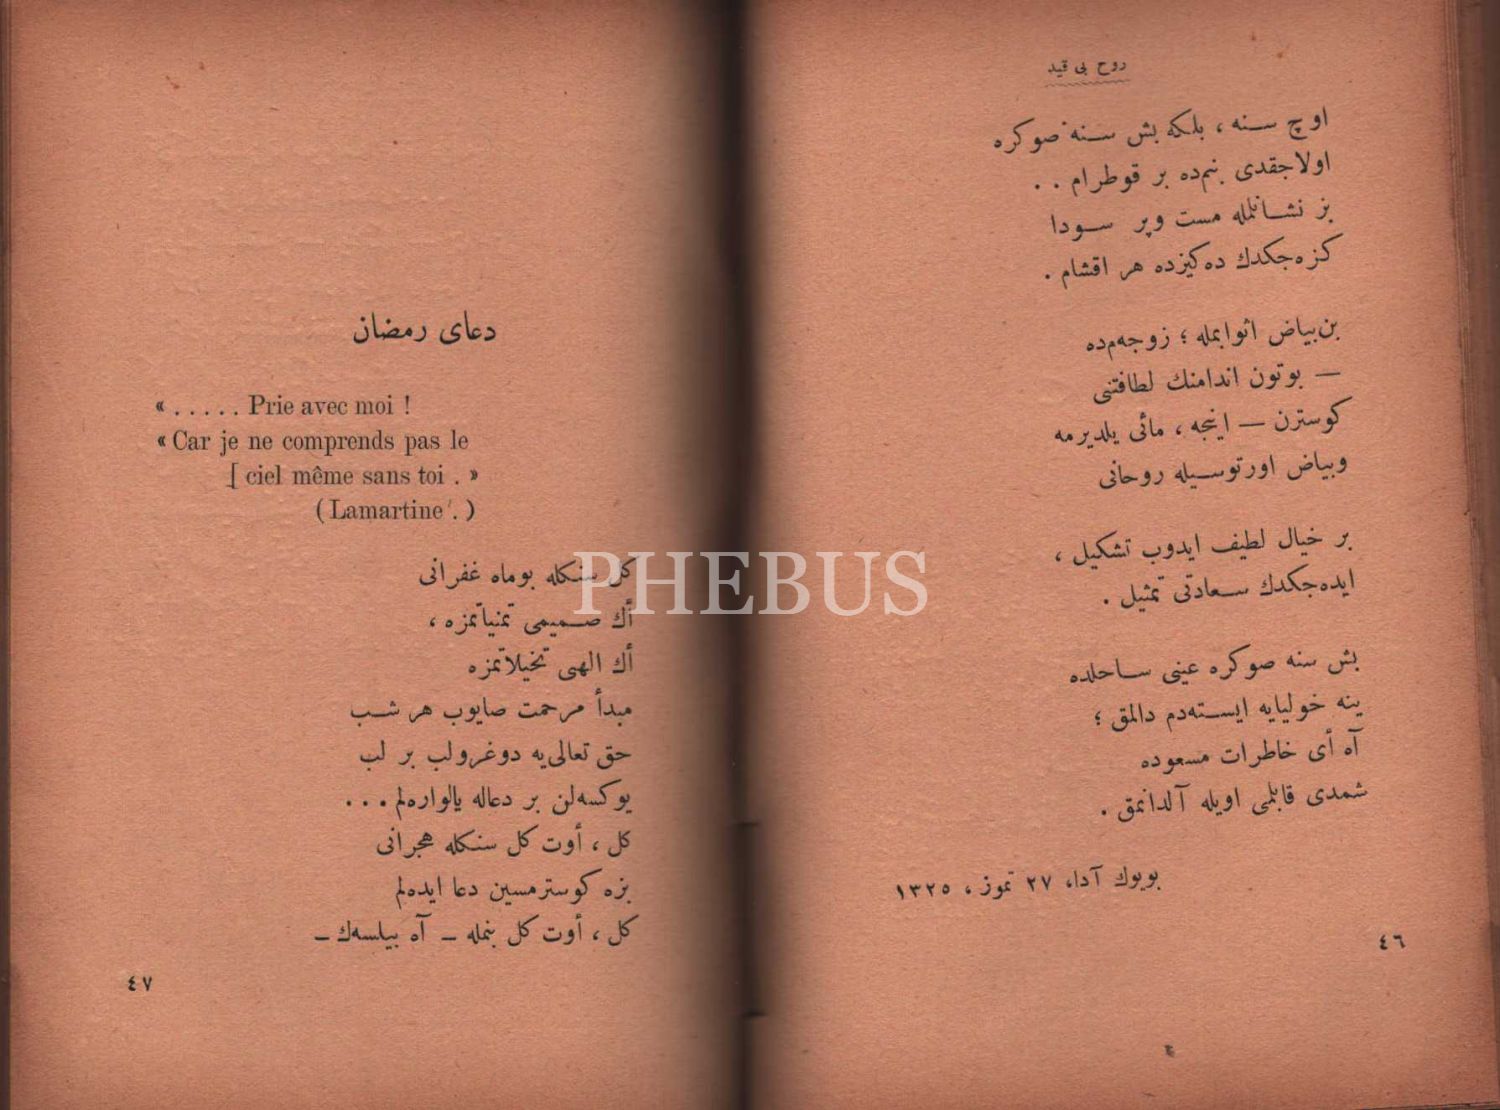 روح بی قید
اوچ سنه ، بلکه بش سنه صوکره
اولاجقدی بنم‌ده بر قوطرام . .
بز نشانلمله مست وپر سودا
کزه‌جکدك ده‌کیزده هر اقشام .
بن‌بیاض اثوابمله ؛ زوجه‌م‌ده
— بوتون اندامنك لطافتنی
کوسترن — اینجه ، مائی یلدیرمه
وبیاض اورتوسیله روحانی
بر خیال لطیف ایدوب تشکیل ،
ایده‌جکدك سعادتی تمثیل .
بش سنه صوکره عینی ساحلده
ینه خولیایه ایسته‌دم دالمق ؛
آه أی خاطرات مسعوده
شمدی قابلمی اویله آلدانمق .
بویوك آدا، ٢٧ تموز ، ١٣٢٥
٤٦
دعای رمضان
« . . . . . Prie avec moi !
« Car je ne comprends pas le
[ ciel même sans toi . »
( Lamartine . )
کل سنکله بوماه غفرانی
أك صمیمی تمنیاتمزه ،
أك الهی تخیلاتمزه
مبدأ مرحمت صایوب هر شب
حق تعالی‌یه دوغرولب بر لب
یوکسه‌لن بر دعاله یالواره‌لم . . .
کل ، أوت کل سنکله هجرانی
بزه کوسترمسین دعا ایده‌لم
کل ، أوت کل بنمله – آه بیلسه‌ك –
٤٧
PHEBUS